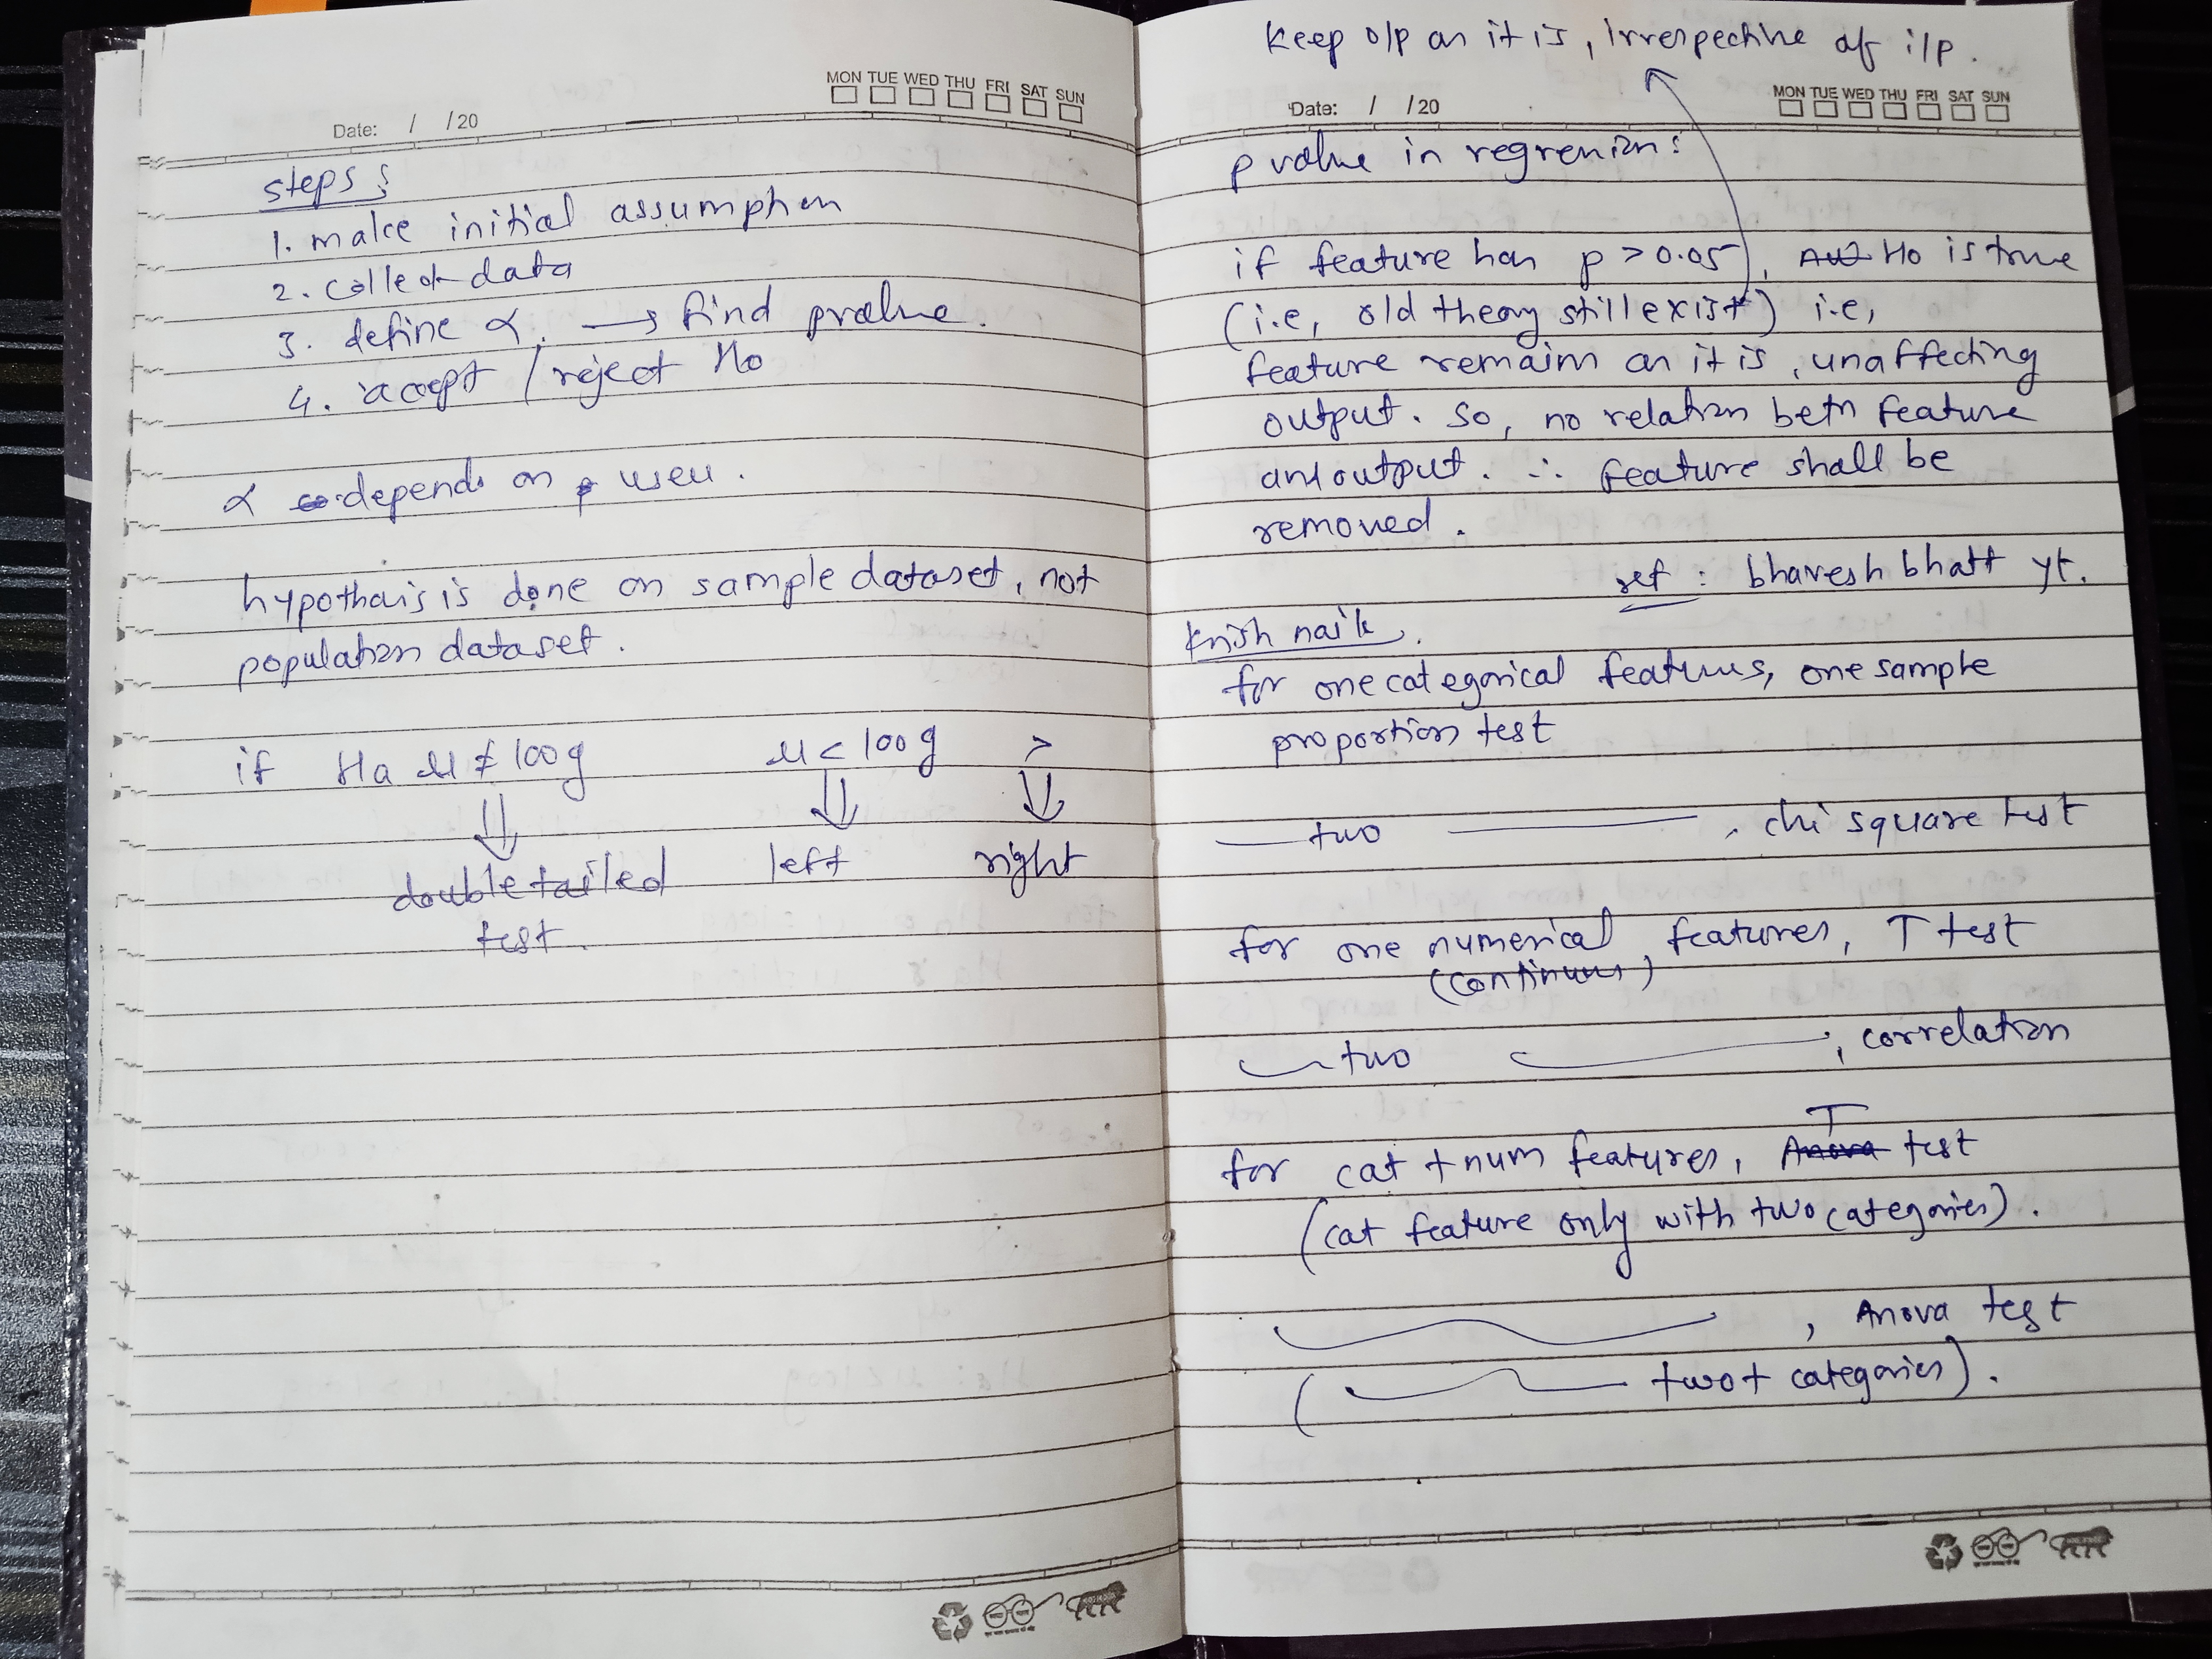 MON TUE WED THU FRI SAT SUN
Date: / /20
steps:
1. make initial assumption
2. collect data
3. define α. → find pvalue.
4. accept / reject Ho
α depends on usecu.
hypothais is done on sample dataset, not
population dataset.
if Ha μ ≠ 100g μ < 100g >
⇓ ⇓ ⇓
double tailed left right
test.
Keep o/p as it is, irrespective of i/p.
MON TUE WED THU FRI SAT SUN
Date: / /20
p value in regression:
if feature has p > 0.05, Ho is true
(i.e, old theory still exist) i.e,
feature remains as it is, unaffecting
output. So, no relation betn feature
and output. ∴ feature shall be
removed.
ref : bhavesh bhatt yt.
Krish naik.
for one categorical features, one sample
proportion test
— two —, chi square test
for one numerical features, T test
(continuous)
— two —, correlation
T
for cat + num features, Anova test
(cat feature only with two categories).
—, Anova test
( — two + categories).